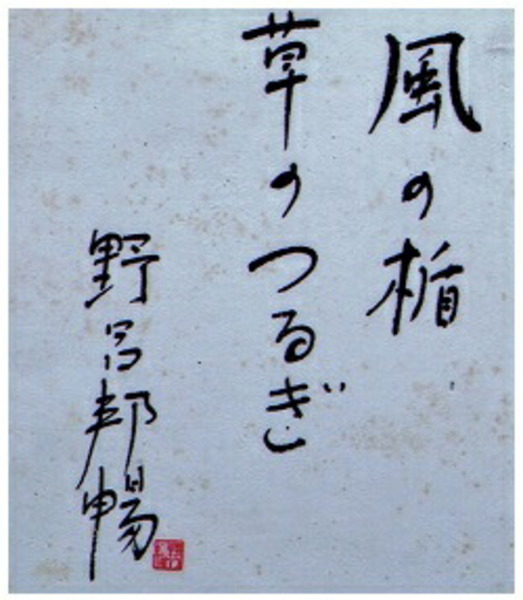 風の楯
草のつるぎ
野呂邦暢